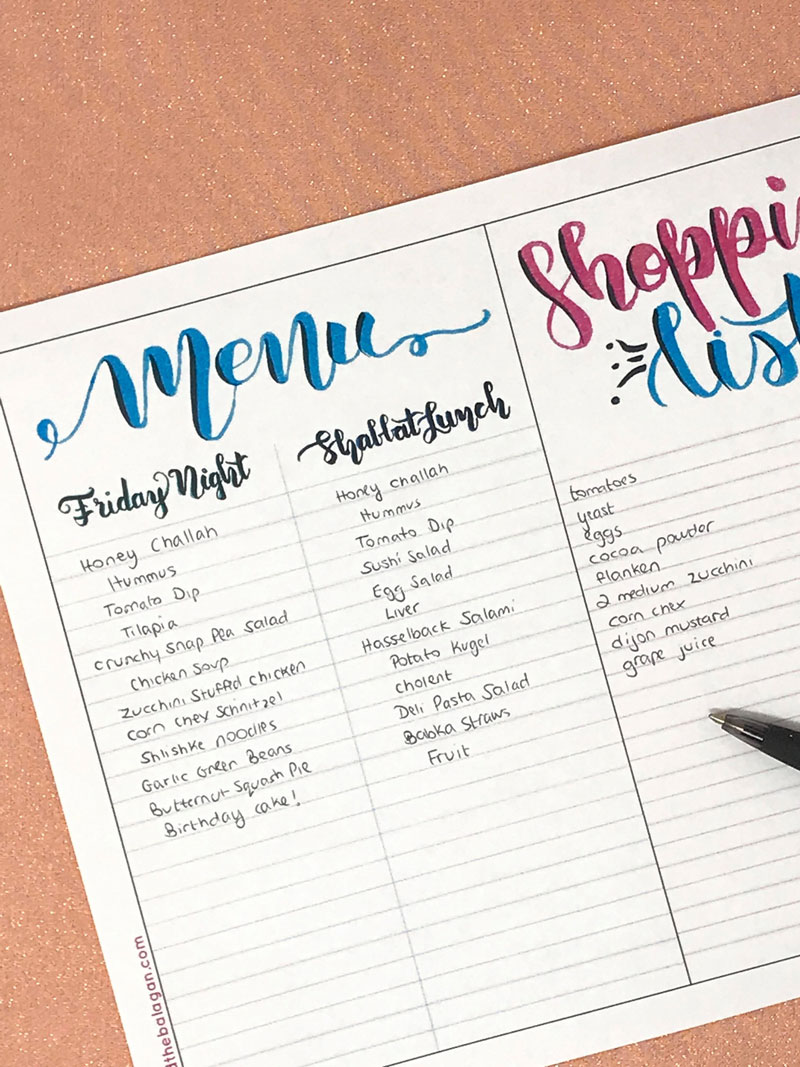 Menu
Friday Night
Honey Challah
Hummus
Tomato Dip
Tilapia
Crunchy Snap Pea Salad
Chicken Soup
Zucchini Stuffed Chicken
Corn Chex Schnitzel
Shlishke noodles
Garlic Green Beans
Butternut Squash Pie
Birthday cake!
Shabbat Lunch
Honey Challah
Hummus
Tomato Dip
Sushi Salad
Egg Salad
Liver
Hasselback Salami
Potato Kugel
cholent
Deli Pasta Salad
Babka Straws
Fruit
Shoppi
Lis
tomatoes
yeast
eggs
cocoa powder
flanken
2 medium zucchini
corn chex
dijon mustard
grape juice
dthebalagan.com